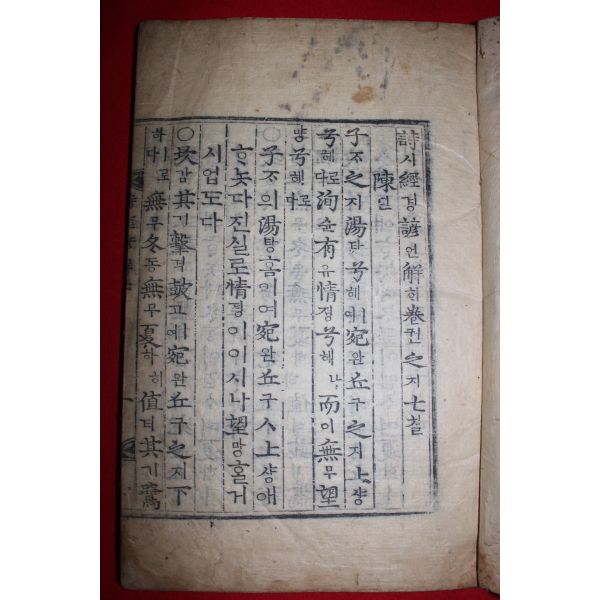 詩시經경諺언解해卷권之지七칠
陳딘
子ᄌᆞ之지湯탕兮혜여宛완丘구之지上샹
兮혜로다洵슌有유情졍兮혜나而이無무望
망兮혜로다
○子ᄌᆞ의湯탕홈이여宛완丘구ㅅ上샹애
ᄒᆞ놋다진실로情졍이이시나望망홀거
시업도다
○坎감其기擊격鼓고ㅣ여宛완丘구之지下
하ㅣ로다無무冬동無무夏하히値티其기鷺